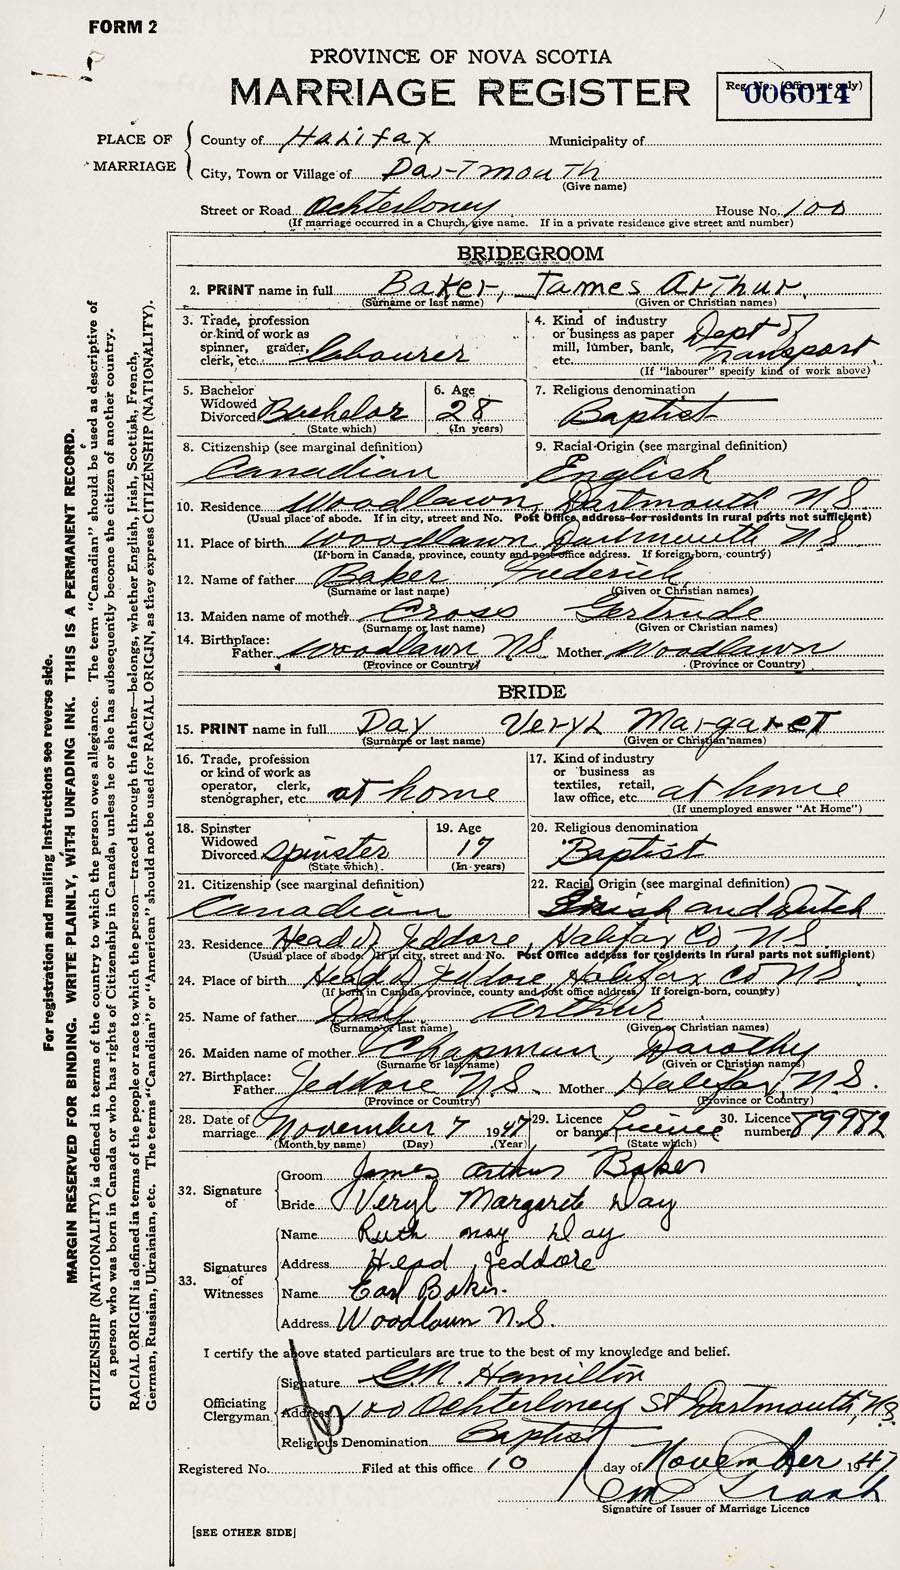 FORM 2
PROVINCE OF NOVA SCOTIA
MARRIAGE REGISTER
Reg. No. (Office use only)
006014
PLACE OF MARRIAGE
County of Halifax Municipality of
City, Town or Village of Dartmouth
(Give name)
Street or Road Ochterloney House No. 100
(If marriage occurred in a Church, give name. If in a private residence give street and number)
BRIDEGROOM
2. PRINT name in full Baker, James Arthur
(Surname or last name) (Given or Christian names)
3. Trade, profession or kind of work as spinner, grader, clerk, etc. labourer
4. Kind of industry or business as paper mill, lumber, bank, etc. Dept of Transport
(If "labourer" specify kind of work above)
5. Bachelor Widowed Divorced Bachelor
(State which)
6. Age 28
(In years)
7. Religious denomination
Baptist
8. Citizenship (see marginal definition)
Canadian
9. Racial Origin (see marginal definition)
English
10. Residence Woodlawn, Dartmouth N S
(Usual place of abode. If in city, street and No. Post Office address for residents in rural parts not sufficient)
11. Place of birth Woodlawn Dartmouth N S
(If born in Canada, province, county and post office address. If foreign born, country)
12. Name of father Baker Frederick
(Surname or last name) (Given or Christian names)
13. Maiden name of mother Cross Gertrude
(Surname or last name) (Given or Christian names)
14. Birthplace: Father Woodlawn NS Mother Woodlawn
(Province or Country) (Province or Country)
BRIDE
15. PRINT name in full Day Veryl Margaret
(Surname or last name) (Given or Christian names)
16. Trade, profession or kind of work as operator, clerk, stenographer, etc. at home
17. Kind of industry or business as textiles, retail, law office, etc. at home
(If unemployed answer "At Home")
18. Spinster Widowed Divorced Spinster
(State which)
19. Age 17
(In years)
20. Religious denomination
Baptist
21. Citizenship (see marginal definition)
Canadian
22. Racial Origin (see marginal definition)
and Dutch
23. Residence Head of Jeddore, Halifax Co, N.S.
(Usual place of abode. If in city, street and No. Post Office address for residents in rural parts not sufficient)
24. Place of birth Head of Jeddore Halifax Co N S
(If born in Canada, province, county and post office address. If foreign-born, country)
25. Name of father Day Arthur
(Surname or last name) (Given or Christian names)
26. Maiden name of mother Chapman, Dorothy
(Surname or last name) (Given or Christian names)
27. Birthplace: Father Jeddore N.S. Mother Halifax, N.S.
(Province or Country) (Province or Country)
28. Date of marriage November 7 1947
(Month by name) (Day) (Year)
29. Licence or banns Licence
(State which)
30. Licence number 89982
32. Signature of
Groom James Arthur Baker
Bride Veryl Margarete Day
33. Signatures of Witnesses
Name Ruth may Day
Address Head Jeddore
Name Earl Baker.
Address Woodlawn N.S.
I certify the above stated particulars are true to the best of my knowledge and belief.
Officiating Clergyman
Signature G.M. Hamilton
Address 100 Ochterloney St Dartmouth, N.S.
Religious Denomination Baptist
Registered No. Filed at this office 10 day of November 1947
Signature of Issuer of Marriage Licence
[SEE OTHER SIDE]
For registration and mailing instructions see reverse side.
MARGIN RESERVED FOR BINDING. WRITE PLAINLY, WITH UNFADING INK. THIS IS A PERMANENT RECORD.
CITIZENSHIP (NATIONALITY) is defined in terms of the country to which the person owes allegiance. The term "Canadian" should be used as descriptive of
a person who was born in Canada or who has rights of Citizenship in Canada, unless he or she has subsequently become the citizen of another country.
RACIAL ORIGIN is defined in terms of the people or race to which the person—traced through the father—belongs, whether English, Irish, Scottish, French,
German, Russian, Ukrainian, etc. The terms "Canadian" or "American" should not be used for RACIAL ORIGIN, as they express CITIZENSHIP (NATIONALITY).